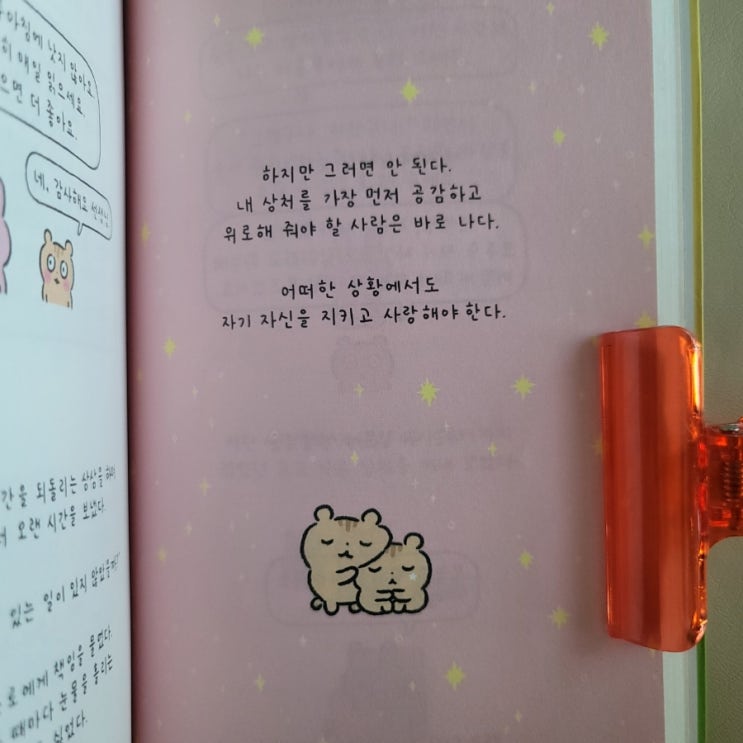 아침에 낫지 않아요.
매일 읽으세요.
더 좋아요.
네, 감사해요
되돌리는 상상을
오랜 시간을 보냈다.
있는 일이 있지
에게 책임을 물었다.
때마다 눈물을 흘리는
싶었다.
하지만 그러면 안 된다.
내 상처를 가장 먼저 공감하고
위로해 줘야 할 사람은 바로 나다.
어떠한 상황에서도
자기 자신을 지키고 사랑해야 한다.